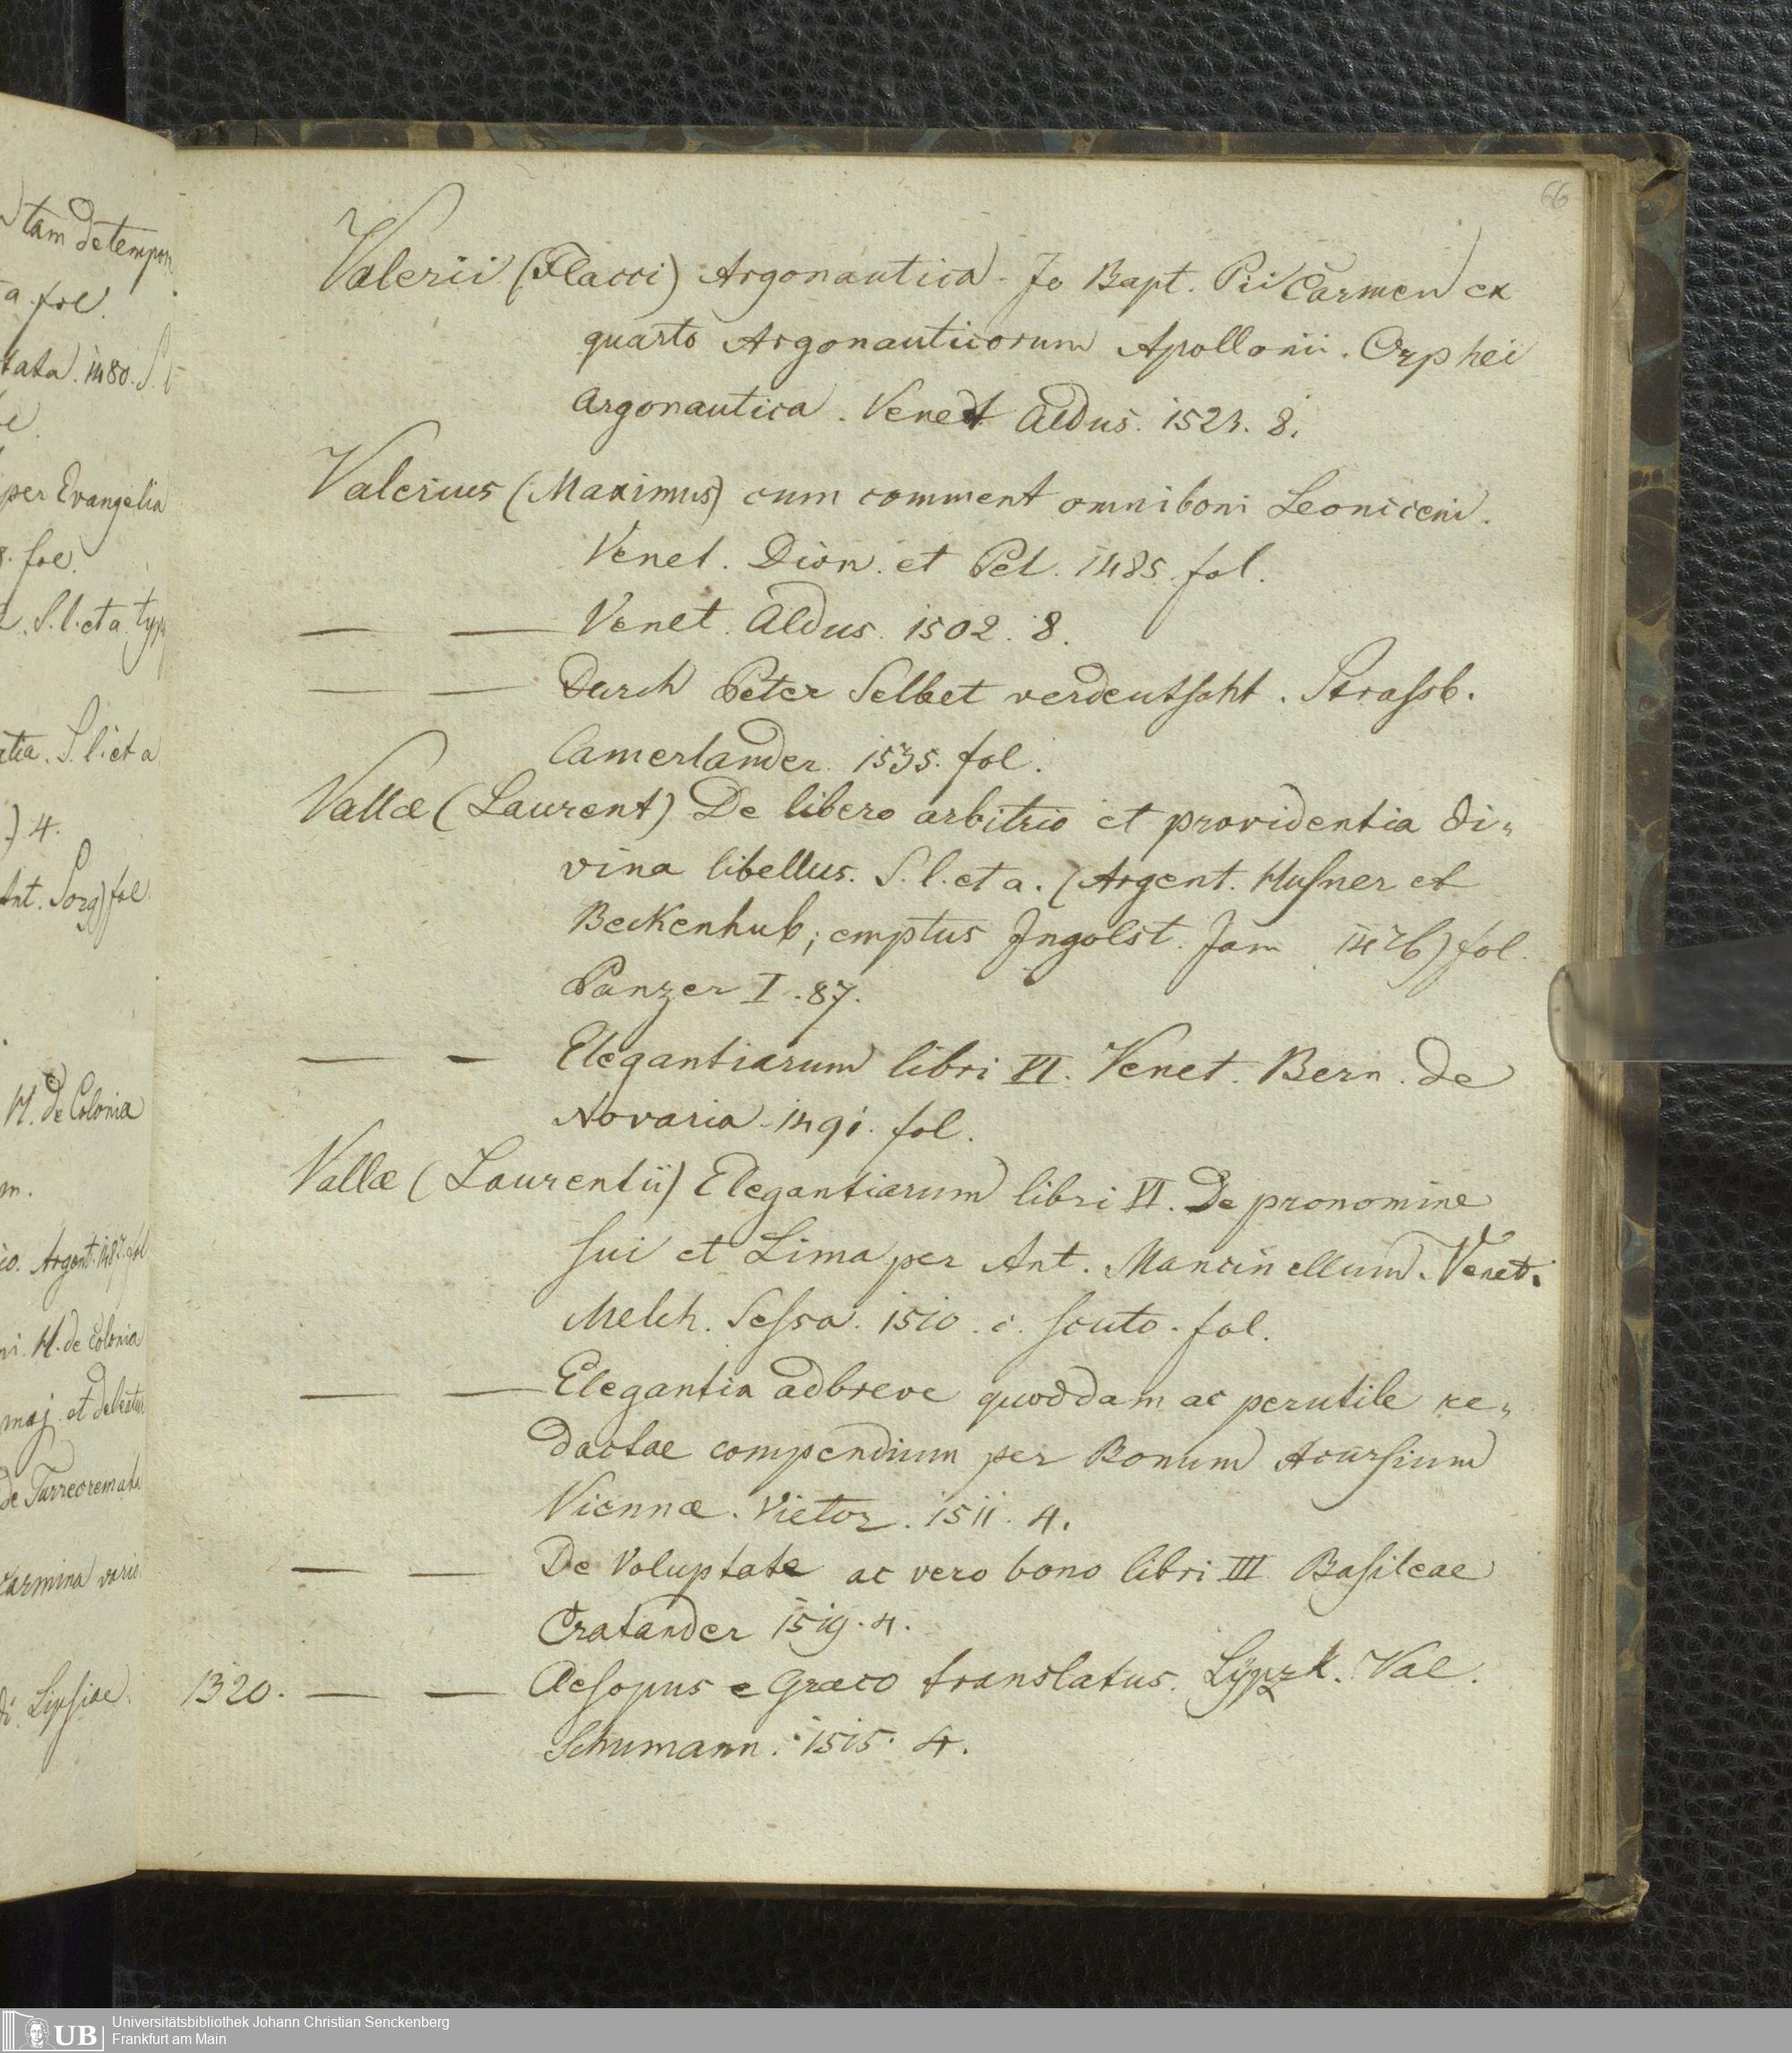 66
Valerii (Flacci) Argonautica. Jo Bapt. Pii Carmen ex
quarto Argonauticorum Apollonii. Orphei
Argonautica. Venet Aldus. 1523. 8.
Valerius (Maximus) cum comment omniboni Leoniceni.
Venet. Dion. et Pel. 1485. fol.
— — Venet. Aldus. 1502. 8.
— — Durch Peter Selbet verdeutscht. Strassb.
Camerlander. 1535. fol.
Vallæ (Laurent) De libero arbitrio et providentia di„
vina libellus. S. l. et a. (Argent. Husner et
Beckenhub; emptus Ingolst. Jam 1476) fol.
Panzer I. 87.
— — Elegantiarum libri VI. Venet. Bern. de
Novaria. 1491. fol.
Vallæ (Laurentii) Elegantiarum libri VI. De pronomine
sui et Lima per Ant. Mancinellum. Venet.
Melch. Sessa. 1510. c. scuto. fol.
— — Elegantia adbreve quoddam ac perutile re„
dactae compendium per Bonum Acursium
Viennæ. Vietor. 1511. 4.
— — De Voluptate ac vero bono libri III Basileae
Cratander 1519. 4.
1320. — — Aesopus e græco translatus. Lypzk. Val.
Schumann. 1515. 4.
tam de tempor
a. fol.
tata. 1480. S. l
per Evangelia
8. fol.
S. l. et a. typ
tia. S. l. et a
) 4.
Ant. Sorg) fol
H. de Colonia
m.
io. Argent. 1487. fol
ni. H. de Colonia
maj. et
de Turrecremata
carmina varia
di Lipsiae.
UB
Universitätsbibliothek Johann Christian Senckenberg
Frankfurt am Main